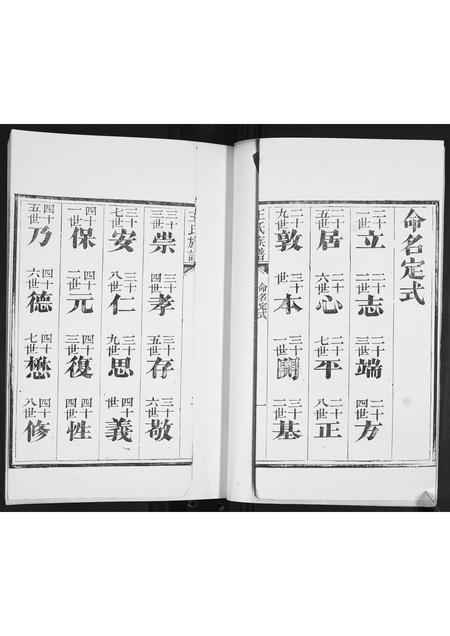 命名定式
二十一世立 二十二世志 二十三世端 二十四世方
二十五世居 二十六世心 二十七世平 二十八世正
二十九世敦 三十世本 三十一世開 三十二世基
王氏族譜 命名定式 一
三十三世崇 三十四世孝 三十五世存 三十六世敬
三十七世安 三十八世仁 三十九世思 四十世義
四十一世保 四十二世元 四十三世復 四十四世性
四十五世乃 四十六世德 四十七世懋 四十八世修